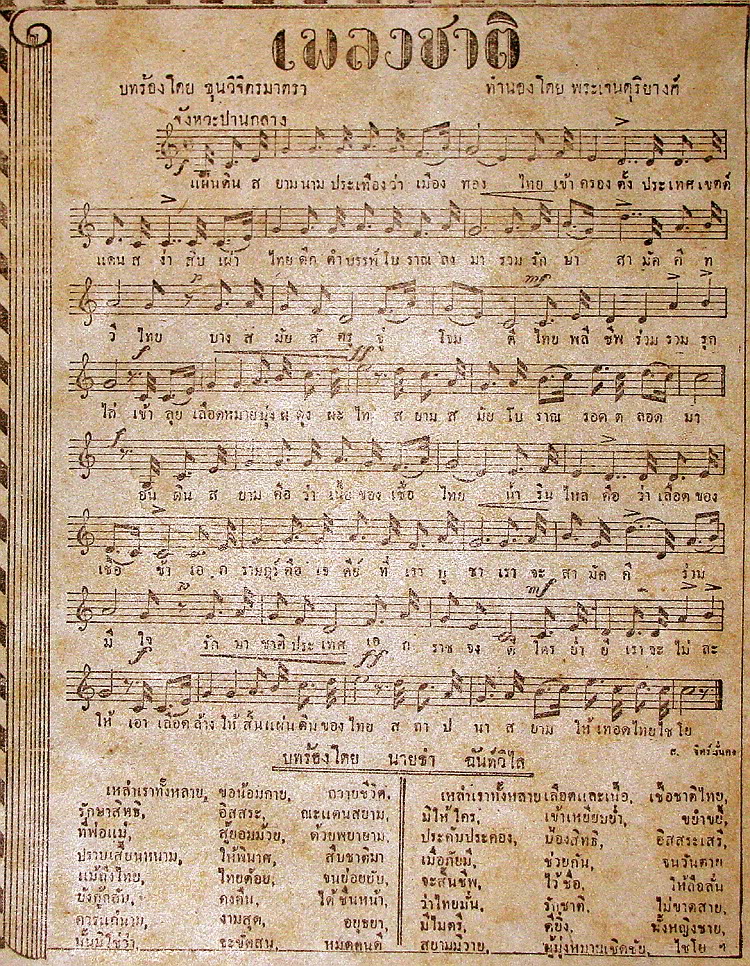 เพลงชาติ
บทร้องโดย ขุนวิจิตรมาตรา ทำนองโดย พระเจนดุริยางค์
จังหวะปานกลาง
f
แผ่นดิน ส ยาม นาม ประเทืองว่า เมือง ทอง ไทย เข้า ครอง ตั้ง ประเทศ เขตต์
แดน ส ง่า สืบ เผ่า ไทย ดึก ดำ บรรพ์ โบ ราณ ลง มา รวม รัก ษา สา มัค คี ท
p mf
วี ไทย บาง ส มัย ศัต รู จู่ โจม ตี ไทย พลี ชีพ ร่วม รวม รุก
f ff
ไล่ เข้า ลุย เลือด หมาย มุ่ง ผดุง ผะ ไท ส ยาม ส มัย โบ ราณ รอด ต ลอด มา
f
อัน ดิน ส ยาม คือ ว่า เนื้อ ของ เชื้อ ไทย น้ำ ริน ไหล คือ ว่า เลือด ของ
เชื้อ ข้า เอ ก ราษฎร์ คือ เจ ดีย์ ที่ เรา บู ชา เรา จะ สา มัค คี ร่วม
p mf
มี ใจ รัก ษา ชาติ ประ เทศ เอ ก ราช จง ดี ใคร ย่ำ ยี เรา จะ ไม่ ละ
f ff
ให้ เอา เลือด ล้าง ให้ สิ้น แผ่น ดิน ของ ไทย ส ถา ป นา ส ยาม ให้ เทอด ไทย ไช โย
บทร้องโดย นายฉ่ำ ฉันท์วิไล
เหล่าเราทั้งหลาย, ขอน้อมกาย, ถวายชีวิต, เหล่าเราทั้งหลาย เลือดและเนื้อ, เชื้อชาติไทย,
รักษาสิทธิ, อิสสระ, ณะแดนสยาม, มิให้ใคร, เข้าเหยียบย่ำ, ขยำขยี้,
ที่พ่อแม่, สู้ยอมม้วย, ด้วยพยายาม, ประคับประคอง, ป้องสิทธิ, อิสสระเสรี,
ปราบเสี้ยนหนาม, ให้พินาศ, สืบชาติมา เมื่อภัยมี, ช่วยกัน, จนวันตาย
แม้ถึงไทย, ไทยด้อย, จนย่อยยับ, จะสิ้นชีพ, ไว้ชื่อ, ให้ลือลั่น
ยังกู้กลับ, คงคืน, ได้ชื่นหน้า, ว่าไทยมั่น, รักชาติ, ไม่ขาดสาย,
ควรแก่นาม, งามสุด, อยุธยา, มีไมตรี, ดียิ่ง, ทั้งหญิงชาย,
นั้นมิใช่ว่า, จะขัดสน, หมดคนดี สยามมวาย, ผู้มุ่งหมายเชิดชัย, ไชโย ฯ